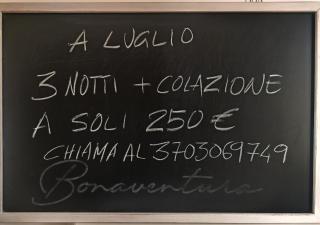 A LUGLIO
3 NOTTI + COLAZIONE
A SOLI 250 €
CHIAMA AL 3703069749
Bonaventura